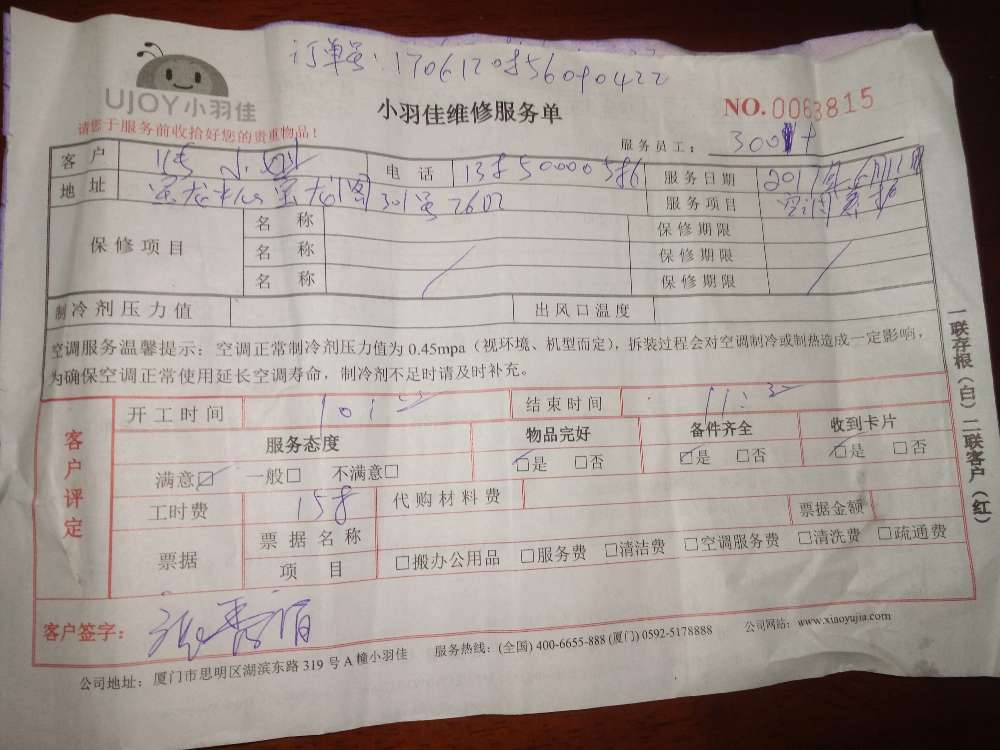 订单号:
UJOY小羽佳
小羽佳维修服务单
NO.0063815
请您于服务前收拾好您的贵重物品!
服务员工:
客户 电话 服务日期
地址 301号2602 服务项目
保修项目
名称 保修期限
名称 保修期限
名称 保修期限
制冷剂压力值 出风口温度
空调服务温馨提示:空调正常制冷剂压力值为 0.45mpa(视环境、机型而定),拆装过程会对空调制冷或制热造成一定影响,
为确保空调正常使用延长空调寿命,制冷剂不足时请及时补充。
客户评定
开工时间 结束时间
服务态度 物品完好 备件齐全 收到卡片
满意☑ 一般□ 不满意□ ☑是 □否 ☑是 □否 ☑是 □否
工时费 代购材料费
票据 票据名称 票据金额
项目 □搬办公用品 □服务费 □清洁费 □空调服务费 □清洗费 □疏通费
客户签字:
公司地址:厦门市思明区湖滨东路 319 号 A 幢小羽佳 服务热线:(全国) 400-6655-888 (厦门) 0592-5178888 公司网站:www.xiaoyujia.com
一联存根(白)二联客户(红)